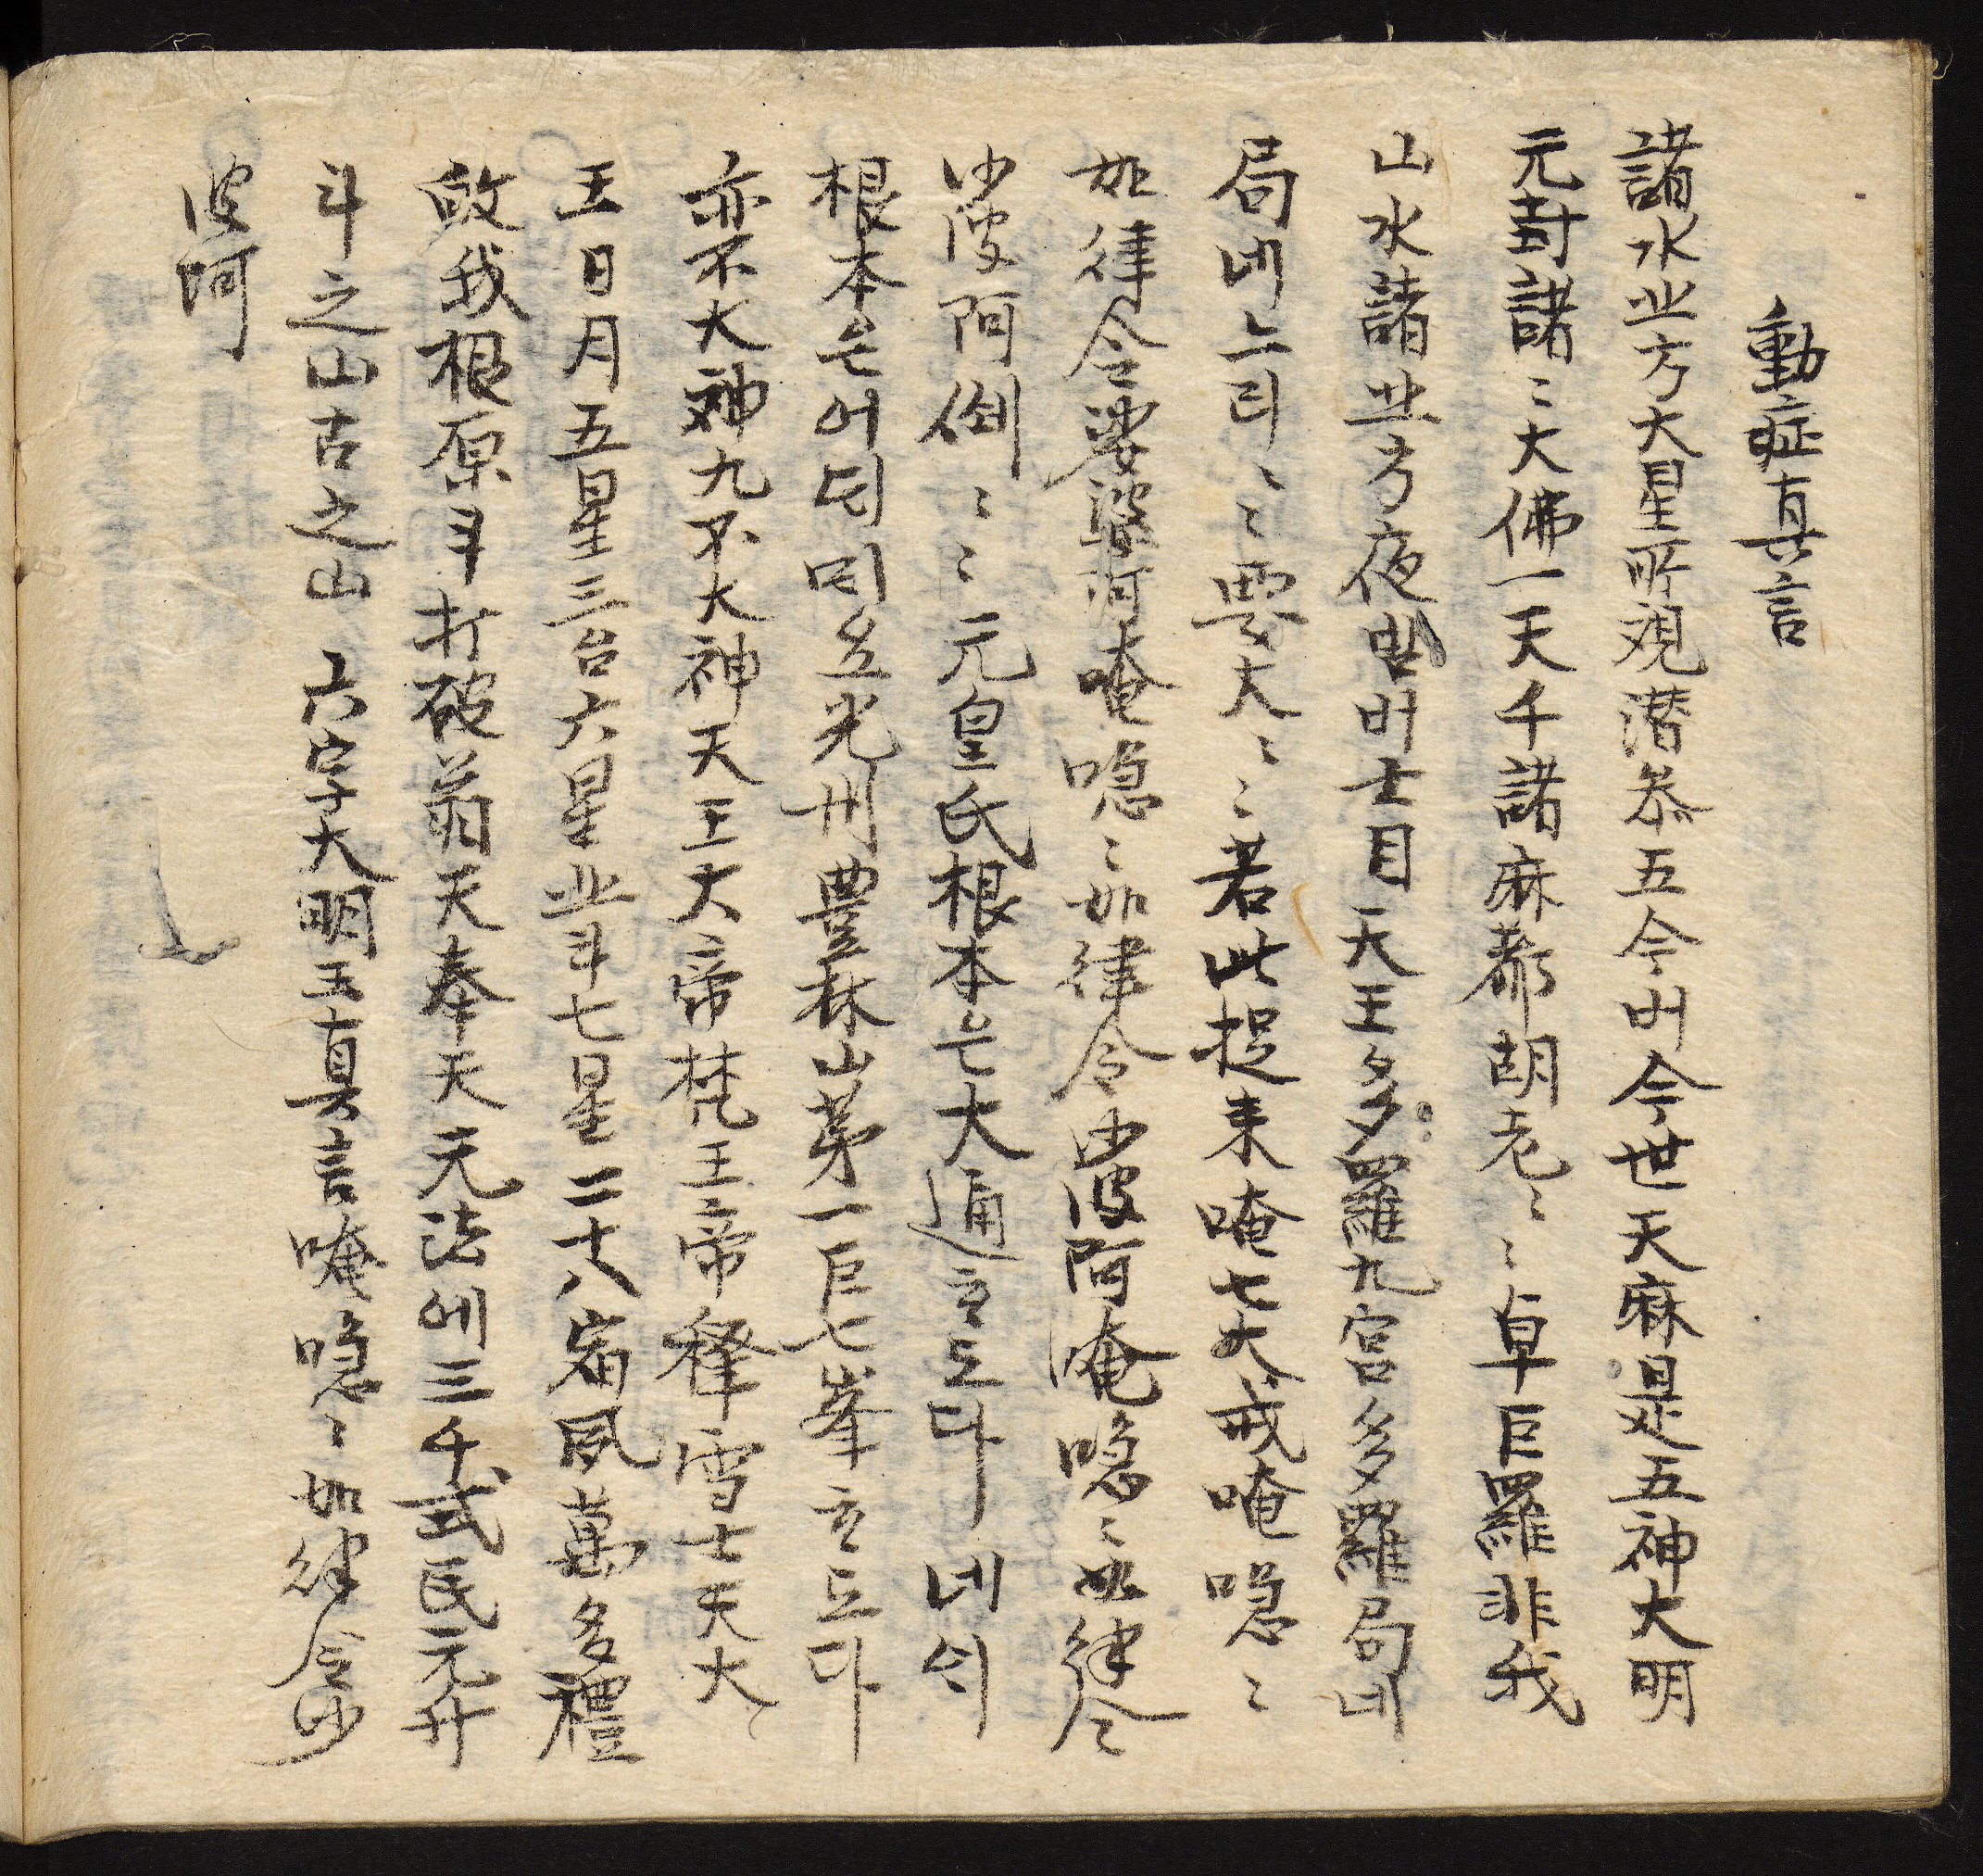 動症真言
諸水北方大星所視潛恭五今버今世天麻是五神大明
元封諸〻大佛一天千諸麻都胡老〻〻卓巨羅非我
山水諸北方夜밤비士目天王多羅九宮多羅局네
局네느리〻〻要大〻〻若此捉来唵七大戒唵唵㘃〻
如律令娑婆阿唵㘃〻如律令沙婆阿唵㘃〻如律令
沙婆阿倒〻〻元皇氏根本은大通立도다네의
根本은어듸믜오光州豊林山茅一巨七峯立도다
亦不大神九不大神天王大帝梵王帝釋雪士天大
王日月五星三台六星北斗七星二十八宿夙萬多禮
敀我根原斗打破蒻天奉天元法에三千式民元升
斗之山古之山 六字大明玉真言唵㘃〻如律令沙
波阿